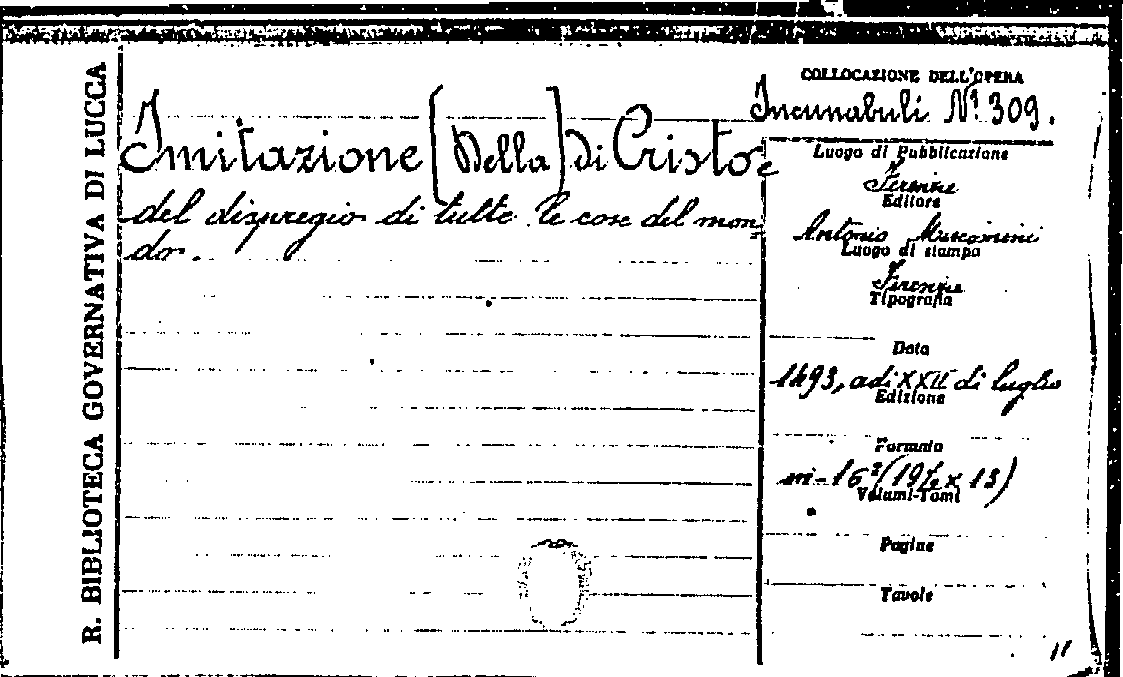 R. BIBLIOTECA GOVERNATIVA DI LUCCA
Imitazione [Della] di Cristo e
del dispregio di tutte le cose del mon=
do.
COLLOCAZIONE DELL'OPERA
Incunabuli N.º 309.
Luogo di Pubblicazione
Firenze
Editore
Antonio Miscomini
Luogo di stampa
Firenze
Tipografia
Data
1493, adi XXII di luglio
Edizione
Formato
in-16º (19½ x 13)
Volumi-Tomi
Pagine
Tavole